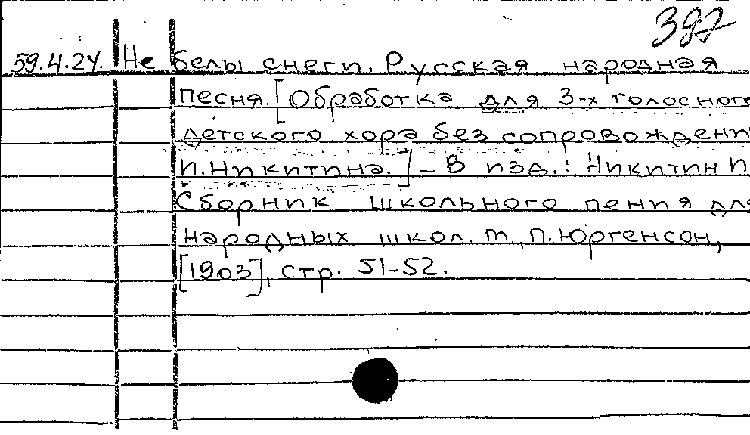 392
59.4.24. Не белы снеги. Русская народная
песня. [Обработка для 3-х голосного
детского хора без сопровождени
П. Никитина.] – В изд.: Никитин П
Сборник школьного пения для
народных школ. М., П. Юргенсон,
[1903], стр. 51-52.